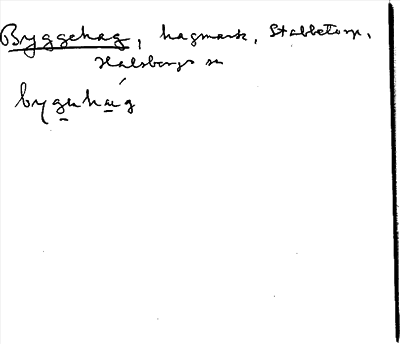 Byggehag, hagmark, Stabbetorp,
Halsbergs sn
bygehag